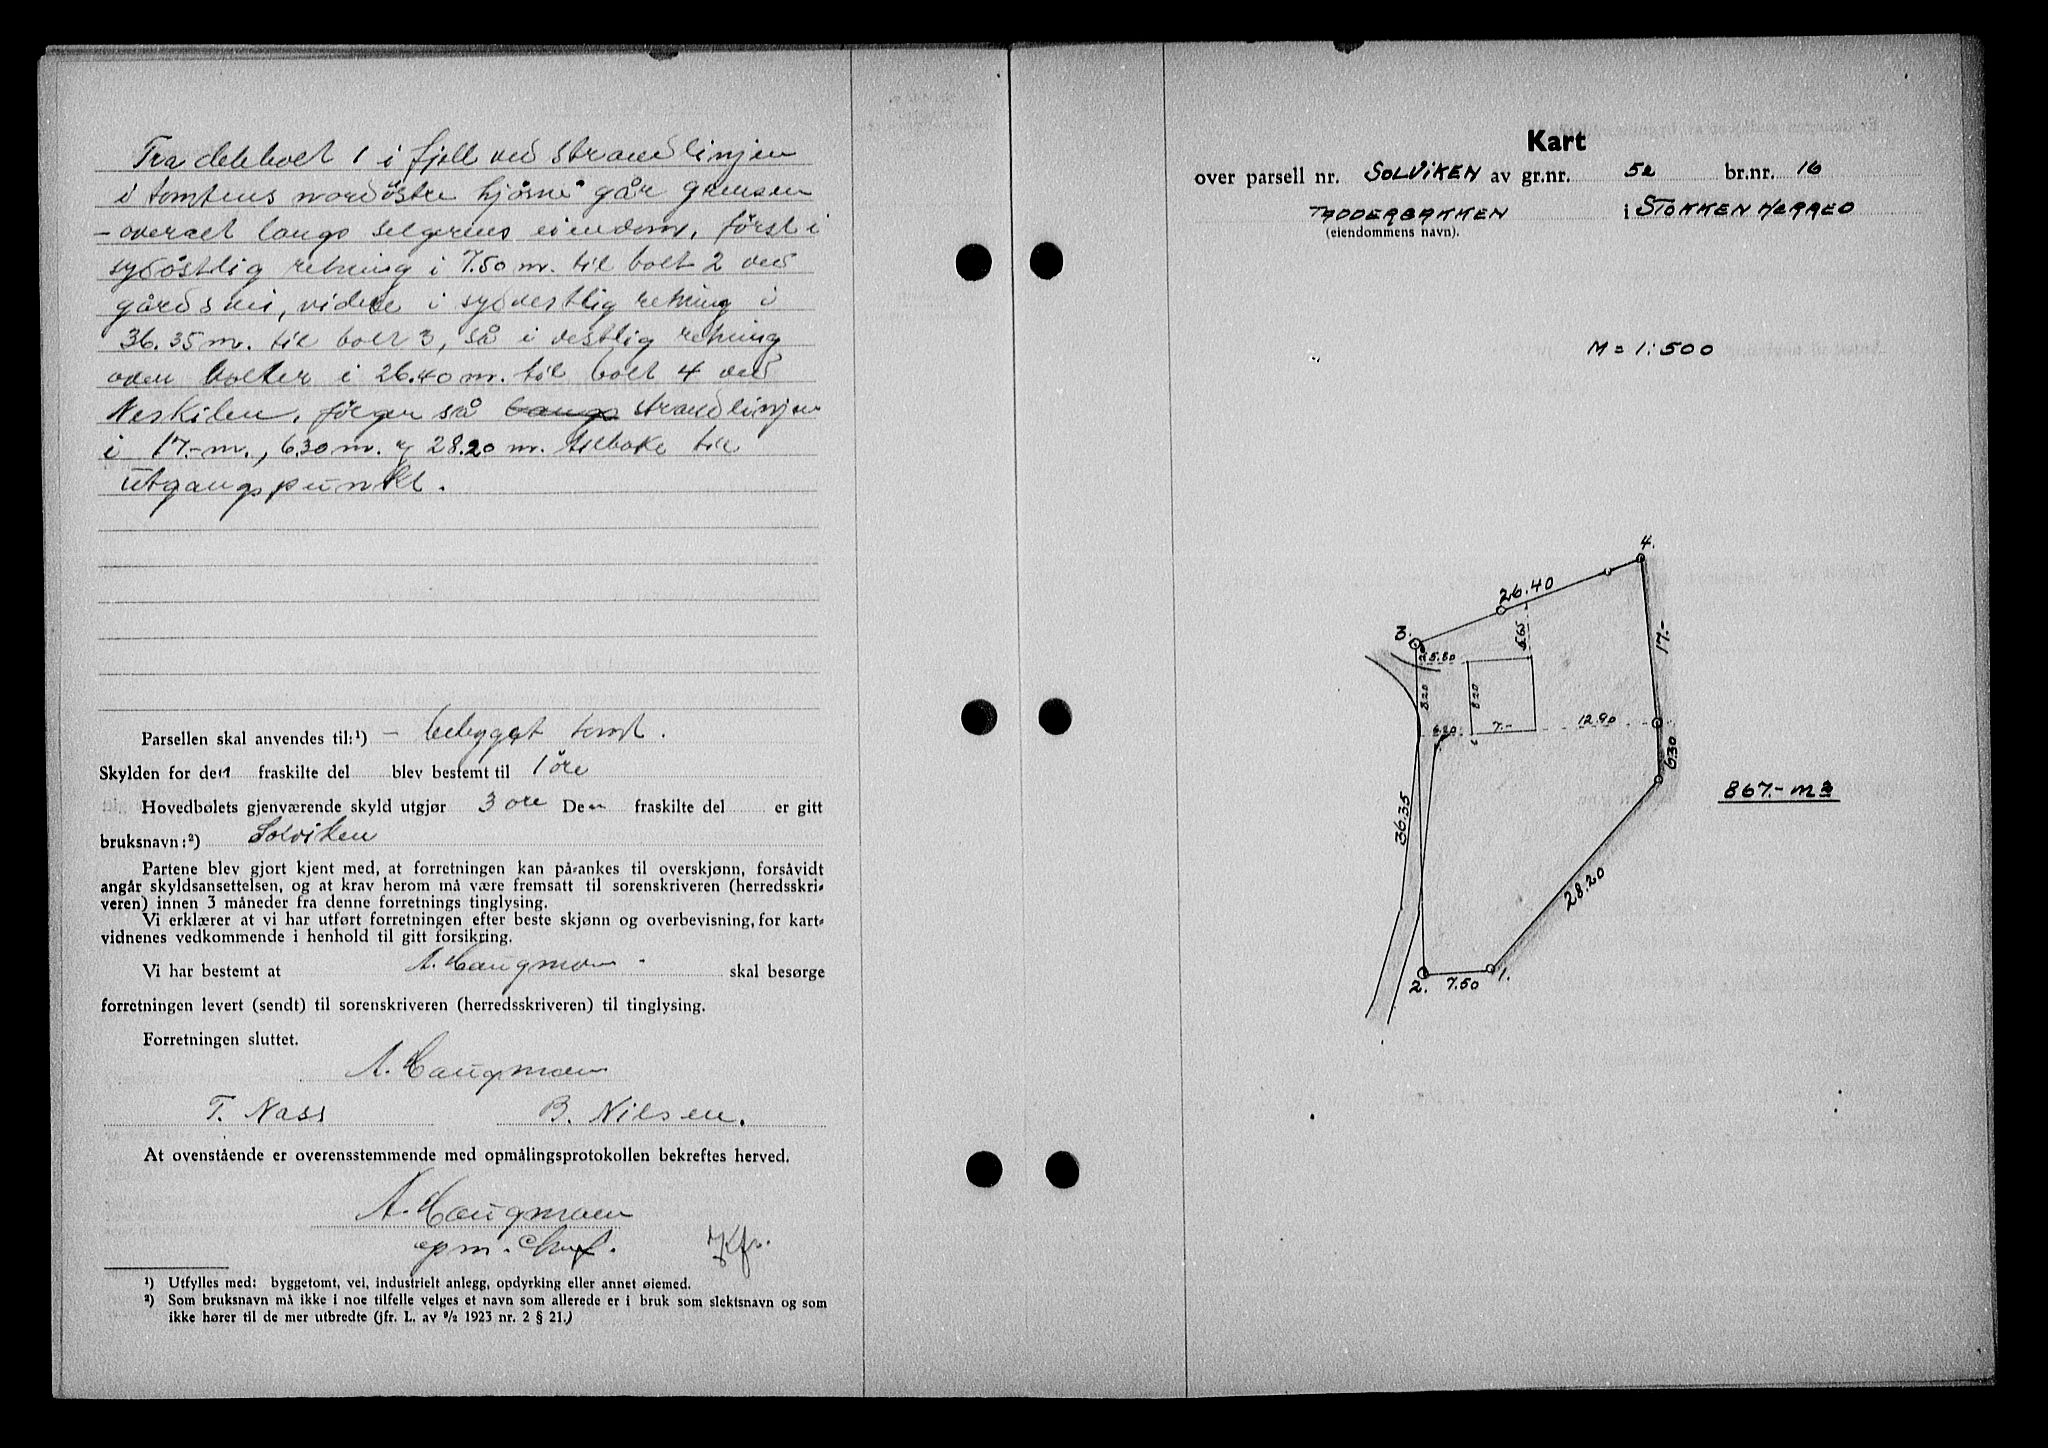 Fra deleboet 1 i fjell ved strandlinjen
i tomtens nordöstre hjörne går grensen
- overalt langs selgerens eiendom, först i
sydöstlig retning i 7.50 m. til bolt 2 ved
gårdsvei, videre i sydvestlig retning i
36.35 m. til bolt 3, så i vestlig retning
over bolter i 26.40 m. til bolt 4 ved
Neskilen, fölger så langs strandlinjen
i 17.- m., 6.30 m. og 28.20 m. tilbake til
utgangspunkt.
Parsellen skal anvendes til:¹) - bebygget tomt.
Skylden for den fraskilte del blev bestemt til 1 öre
Hovedbølets gjenværende skyld utgjør 3 öre Den fraskilte del er gitt
bruksnavn:²) Solviken
Partene blev gjort kjent med, at forretningen kan på-ankes til overskjønn, forsåvidt
angår skyldsansettelsen, og at krav herom må være fremsatt til sorenskriveren (herredsskri-
veren) innen 3 måneder fra denne forretnings tinglysing.
Vi erklærer at vi har utført forretningen efter beste skjønn og overbevisning, for kart-
vidnenes vedkommende i henhold til gitt forsikring.
Vi har bestemt at A. Haugmoen skal besørge
forretningen levert (sendt) til sorenskriveren (herredsskriveren) til tinglysing.
Forretningen sluttet.
A. Haugmoen
T. Nass B. Nilsen.
At ovenstående er overensstemmende med opmålingsprotokollen bekreftes herved.
A. Haugmoen
opm.
¹) Utfylles med: byggetomt, vei, industrielt anlegg, opdyrking eller annet øiemed.
²) Som bruksnavn må ikke i noe tilfelle velges et navn som allerede er i bruk som slektsnavn og som
ikke hører til de mer utbredte (jfr. L. av ⁹/₂ 1923 nr. 2 § 21.)
Kart
over parsell nr. SOLVIKEN av gr.nr. 52 br.nr. 16
TADDERBAKKEN i STOKKEN HERRED
(eiendommens navn).
M = 1:500
4.
26.40
3.
5.65
17.-
5.80
8.20
8.20
6.20
7.-
12.90
6.30
36.35
867.- m2
28.20
2.
7.50
1.